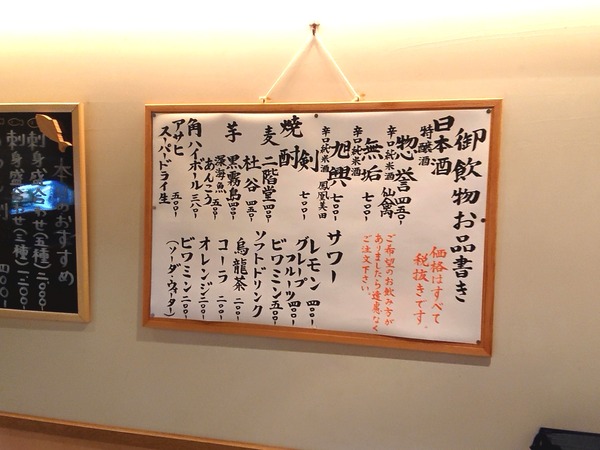 御飲物お品書き
価格はすべて
税抜きです。
日本酒
特醸酒
惣誉 四五〇-
辛口純米酒 仙禽
無垢 七〇〇-
辛口純米酒
旭興 七〇〇-
辛口純米酒 鳳凰美田
剣 七〇〇-
ご希望のお飲み方が
ありましたら遠慮なく
ご注文下さい。
焼酎
麦 二階堂 四〇〇-
杜谷 四五〇-
芋 黒霧島 四〇〇-
深海魚
あんこう 五〇〇-
角ハイボール 三八〇-
アサヒ
スーパードライ生 五〇〇-
サワー
レモン 四〇〇-
グレープ
フルーツ 四〇〇-
ビワミン 五〇〇-
ソフトドリンク
烏龍茶 二〇〇-
コーラ 二〇〇-
オレンジ 二〇〇-
ビワミン 二〇〇-
(ソーダ・ウォーター)
本日のおすすめ
刺身盛合わせ(五種) 二〇〇〇-
刺身盛合わせ(三種) 一二〇〇-